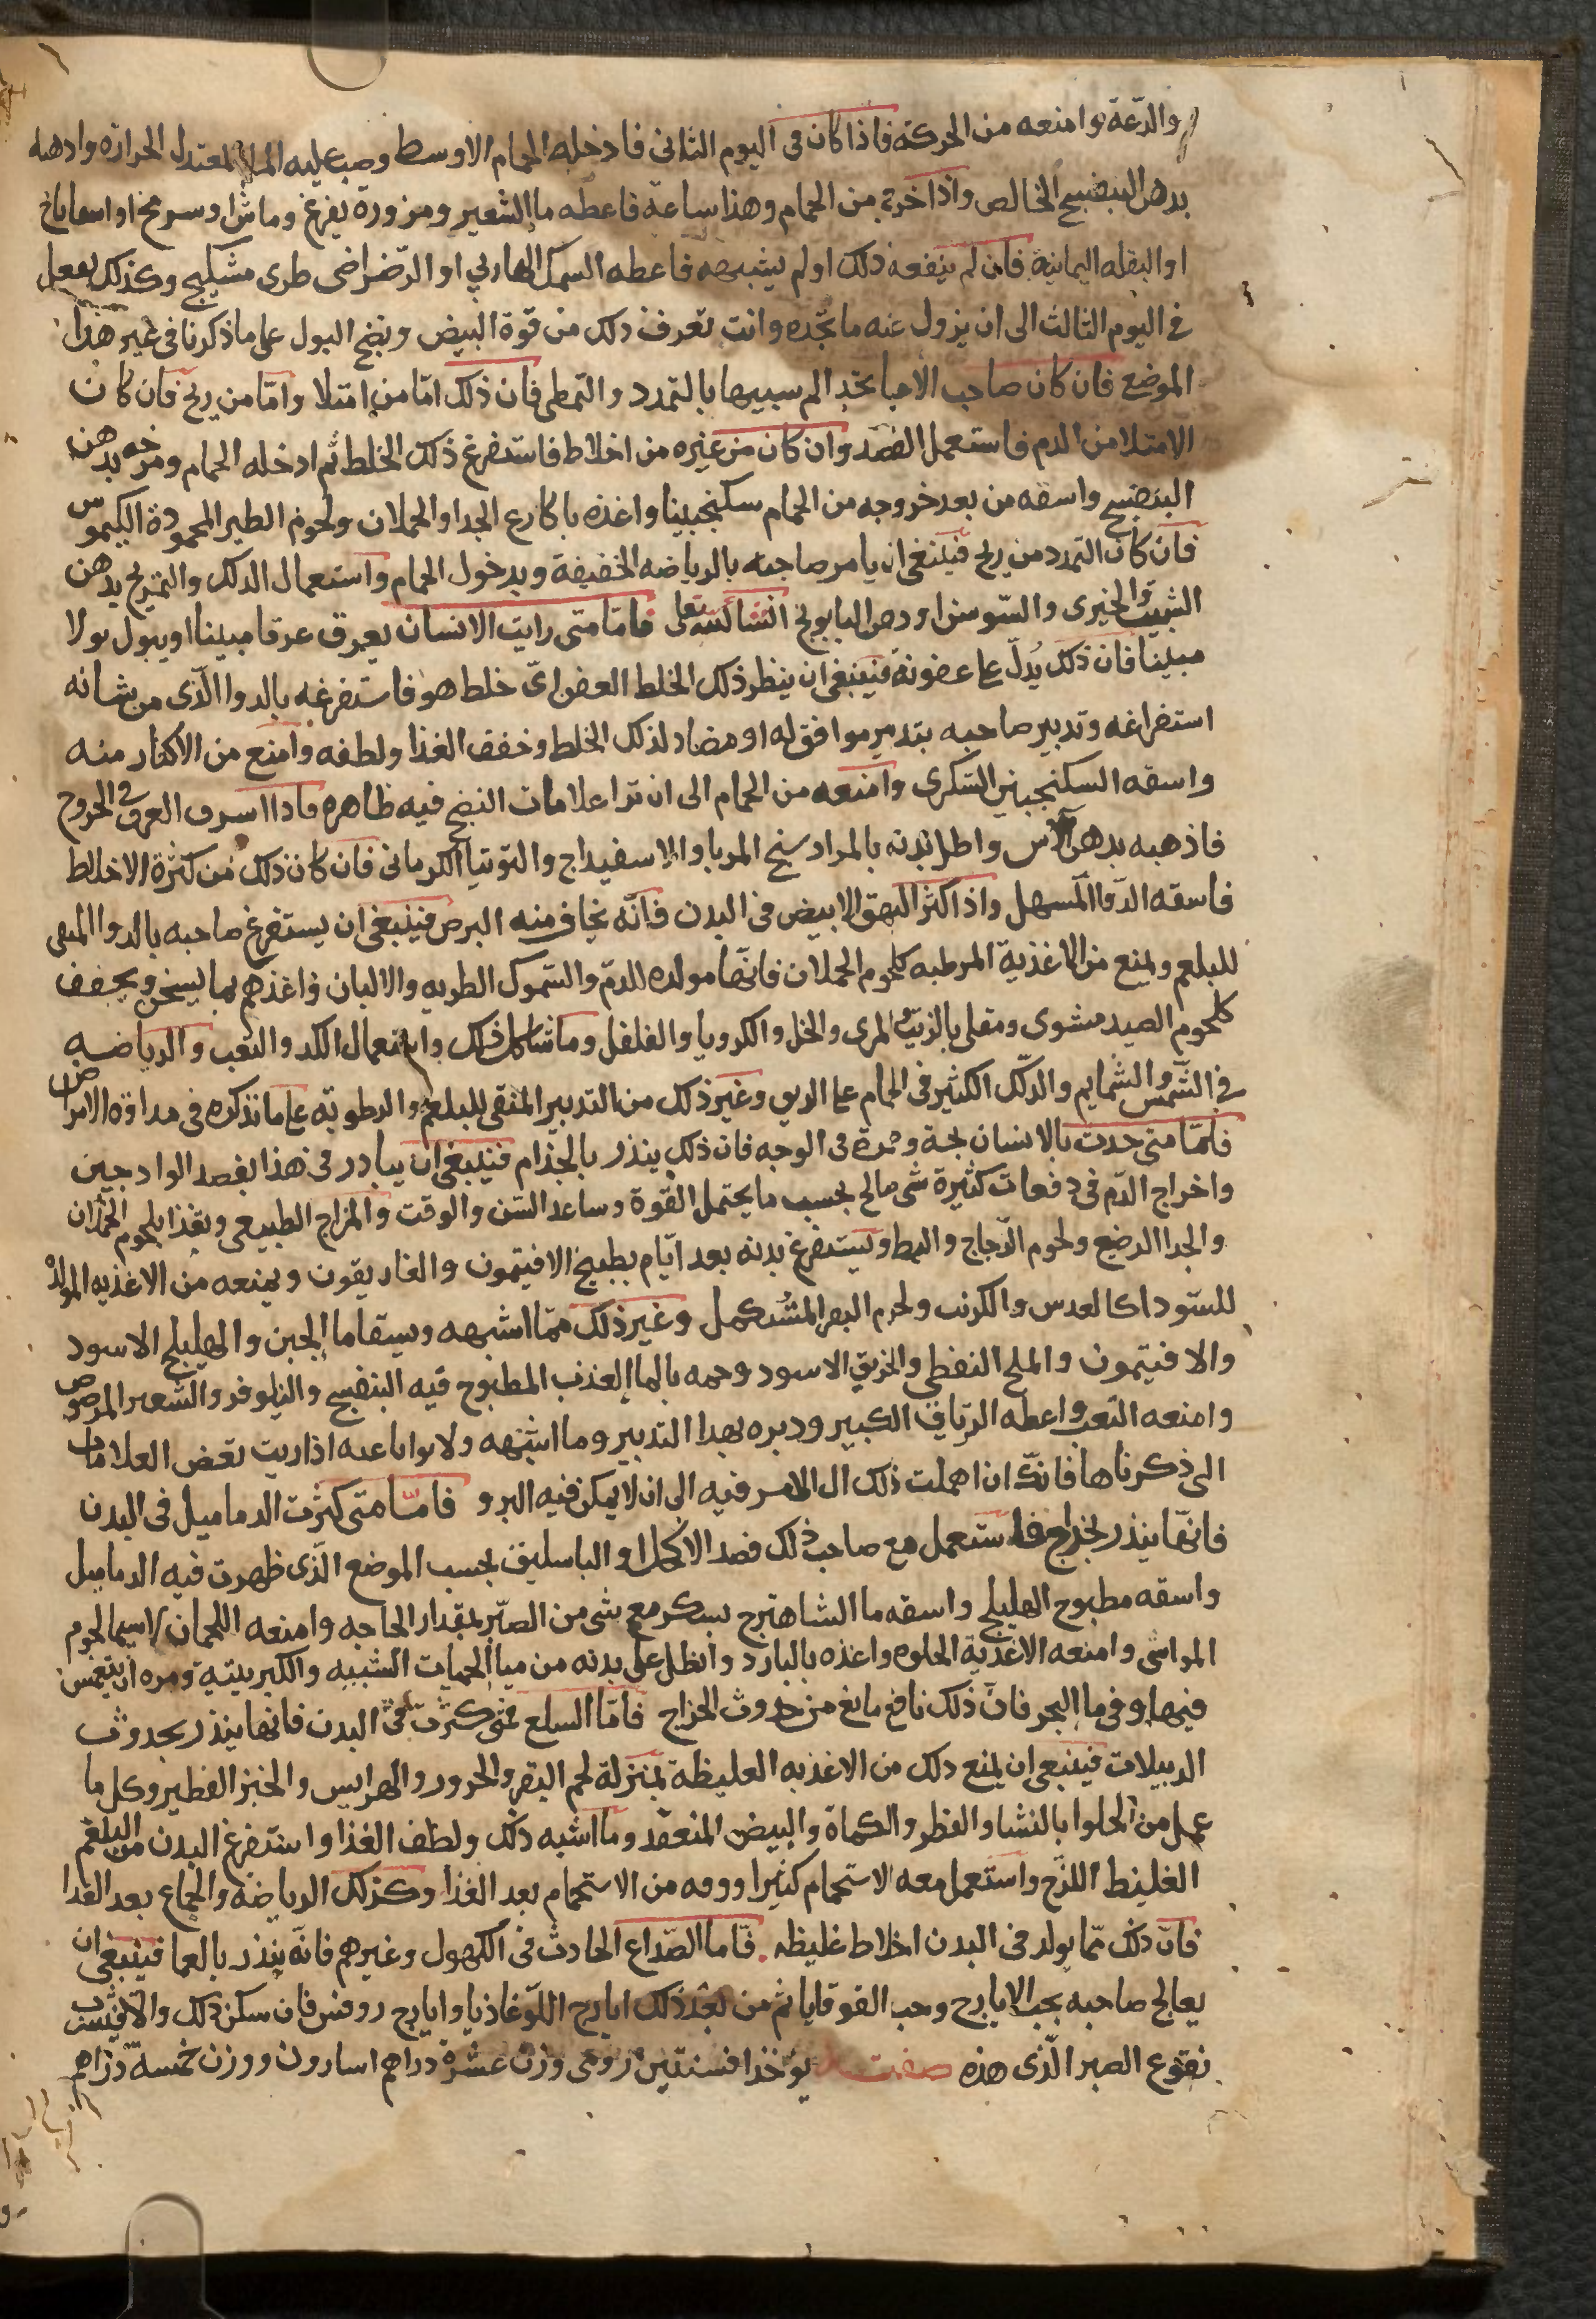 والدّعة وامنعه من الحركة فاذا كان فى اليوم الثانى فادخله الحمام الاوسط وصب عليه الما المعتدل الحراره وادهنه
بدهن البنفسج الخالص واذا خرج من الحمام وهدا ساعة فاعطه ما الشعير ومزورة بقرع وماش او سرمج او اسفاناخ
او البقله اليمانية فان لم ينفعه ذلك او لم يشبعه فاعطه السمك الهاربى او الرّضراضى طرى مشكبج وكذلك يفعل
فى اليوم الثالث الى ان يزول عنه ما تجّده وانت تعرف ذلك من قوة النبض ونضج البول على ما ذكرنا فى غير هذا
الموضع فان كان صاحب الاعيا يجد الم سبيها بالتمدد والتمطى فان ذلك امّا من امتلا وامّا من ريح فان كان
الامتلا من الدم فاستعمل الفصد وان كان من غيره من اخلاط فاستفرغ ذلك الخلط ثم ادخله الحمام ومرخه بدهن
البنفسج واسقه من بعد خروجه من الحمام سكنجبينا واغذه باكارع الجدا والحملان ولحوم الطير المحمودة الكيموس
فان كان التمدد من ريح فينبغى ان يامر صاحبه بالرياضه الخفيفة وبدخول الحمام واستعمال الدلك والتمريخ بدهن
الشبث والخيرى والسّوسن او دهن البابونج انشا الله تعلى فامّا متى رايت الانسان يعرق عرقا مبينا او يبول بولا
مبينا فان ذلك يُدلّ على عفونة فينبغى ان ينظر ذلك الخلط العفن اىّ خلط هو فاستفرغه بالدوا الّذى من شانه
استفراغه وتدبير صاحبه بتدبير موافق له او مضاد لذلك الخلط وخفف الغذا ولطفه وامنع من الاكثار منه
واسقه السكنجبين السّكرى وامنعه من الحمام الى ان ترا علامات النضج فيه ظاهره فاذا اسرف العرق فى الخروج
فاذهبه بدهن الآس واطل بدنه بالمرادسنج المربا والاسفيداج والتوتيا الكرمانى فان كان ذلك من كثرة الاخلاط
فاسقه الدّوا المسهل واذا كثر البهق الابيض فى البدن فانّه يخاف منه البرص فينبغى ان يستفرغ صاحبه بالدوا المنقى
للبلغم ويمنع من الاغذية المرطبه كلحوم الحملان فانّها مولده للدمّ والسّموك الطريه والالبان واغذهم بما يسخن ويجفف
كلحوم الصيد مشوى ومقلى بالزيت والمرى والخل والكرويا والفلفل وما شاكل ذلك واستعمال الكد والتعب والرياضه
فى الشّمس والشمايم والدلّك الكثير فى الحمام على الريق وغير ذلك من التدبير المنقى للبلغم والرطوبة على ما نذكره فى مداوة الامراض
فامّا متى حدث بالانسان بحة وحمرة فى الوجه فان ذلك ينذر بالجذام فينبغى ان يبادر فى هذا بفصد الوادجين
واخراج الدّم فى دفعات كثيرة شى صالح بحسب ما يحتمل القوة وساعد السّن والوقت والمزاج الطبيعى ويغذا بلحوم الحملان
والجدا الرضع ولحوم الدّجاج والبط ويستفرغ بدنه بعد ايّام بطبيخ الافتيمون والغاريقون ويمنعه من الاغذيه المولدة
للسّودا كالعدس والكرنب ولحوم البقر المشكمل وغير ذلك ممّا اشبهه ويسقا ما الجبن والهليلج الاسود
والافتيمون والملح النفطى والخربق الاسود وحمه بالما العذب المطبوخ فيه البنفسج والنيلوفر والشعير المرضوض
وامنعه التعب واعطه الترياق الكبير ودبره بهدا التدبير وما اشبهه ولا توانا عنه اذا رايت بعض العلامات
التى ذكرناها فانك ان اهملت ذلك ال الامر فيه الى ان لا يمكن فيه البرو فامّا متى كثرت الدماميل فى البدن
فانّها ينذر بخراج فاستعمل مع صاحب ذلك فصد الاكحل او الباسليق بحسب الموضع الّذى ظهرت فيه الدماميل
واسقه مطبوخ الهليلج واسقه ما الشاهترج بسكر مع شى من الصّبر بمقدار الحاجه وامنعه اللحمان لا سيما لحوم
المواشى وامنعه الاغذية الحلوه واغذه بالبارد وانطل على بدنه من مياه الحميات الشبيه والكبريتية ومره ان ينغمس
فيها او فى ما البحر فانّ ذلك نافع مانع من حدوث الخراج فامّا السلع متى كثرت فى البدن فانها ينذر بحدوث
الدبيلات فينبعى ان يمنع ذلك من الاغذيه الغليظة بمنزلة لحم البقر والجزور والهرايس والخبز الفطير وكل ما
عمل من الحلوا بالنشا والفطر والكماة والبيض المنعقد وما اشبه ذلك ولطف الغذا واستفرغ البدن من البلغم
الغليظ اللزج واستعمل معه الاستحمام كثيرا ووقه من الاستحمام بعد الغذا وكذلك الرياضه والجماع بعد الغدا
فان ذلك ممّا يولد فى البدن اخلاط غليظه فامّا الصّداع الحادث فى الكهول وغيرهم فانّه ينذر بالعما فينبغى ان
يعالج صاحبه بحب الايارج وحب القوقايا ثم من بعد ذلك ايارج اللّوغاذيا وايارج روفس فان سكن ذلك والّا فيشرب
نقوع الصبر الّذى هذه صفته يؤخذ افسنتين رومى وزن عشرة دراهم اسارون ووزن خمسة دراهم